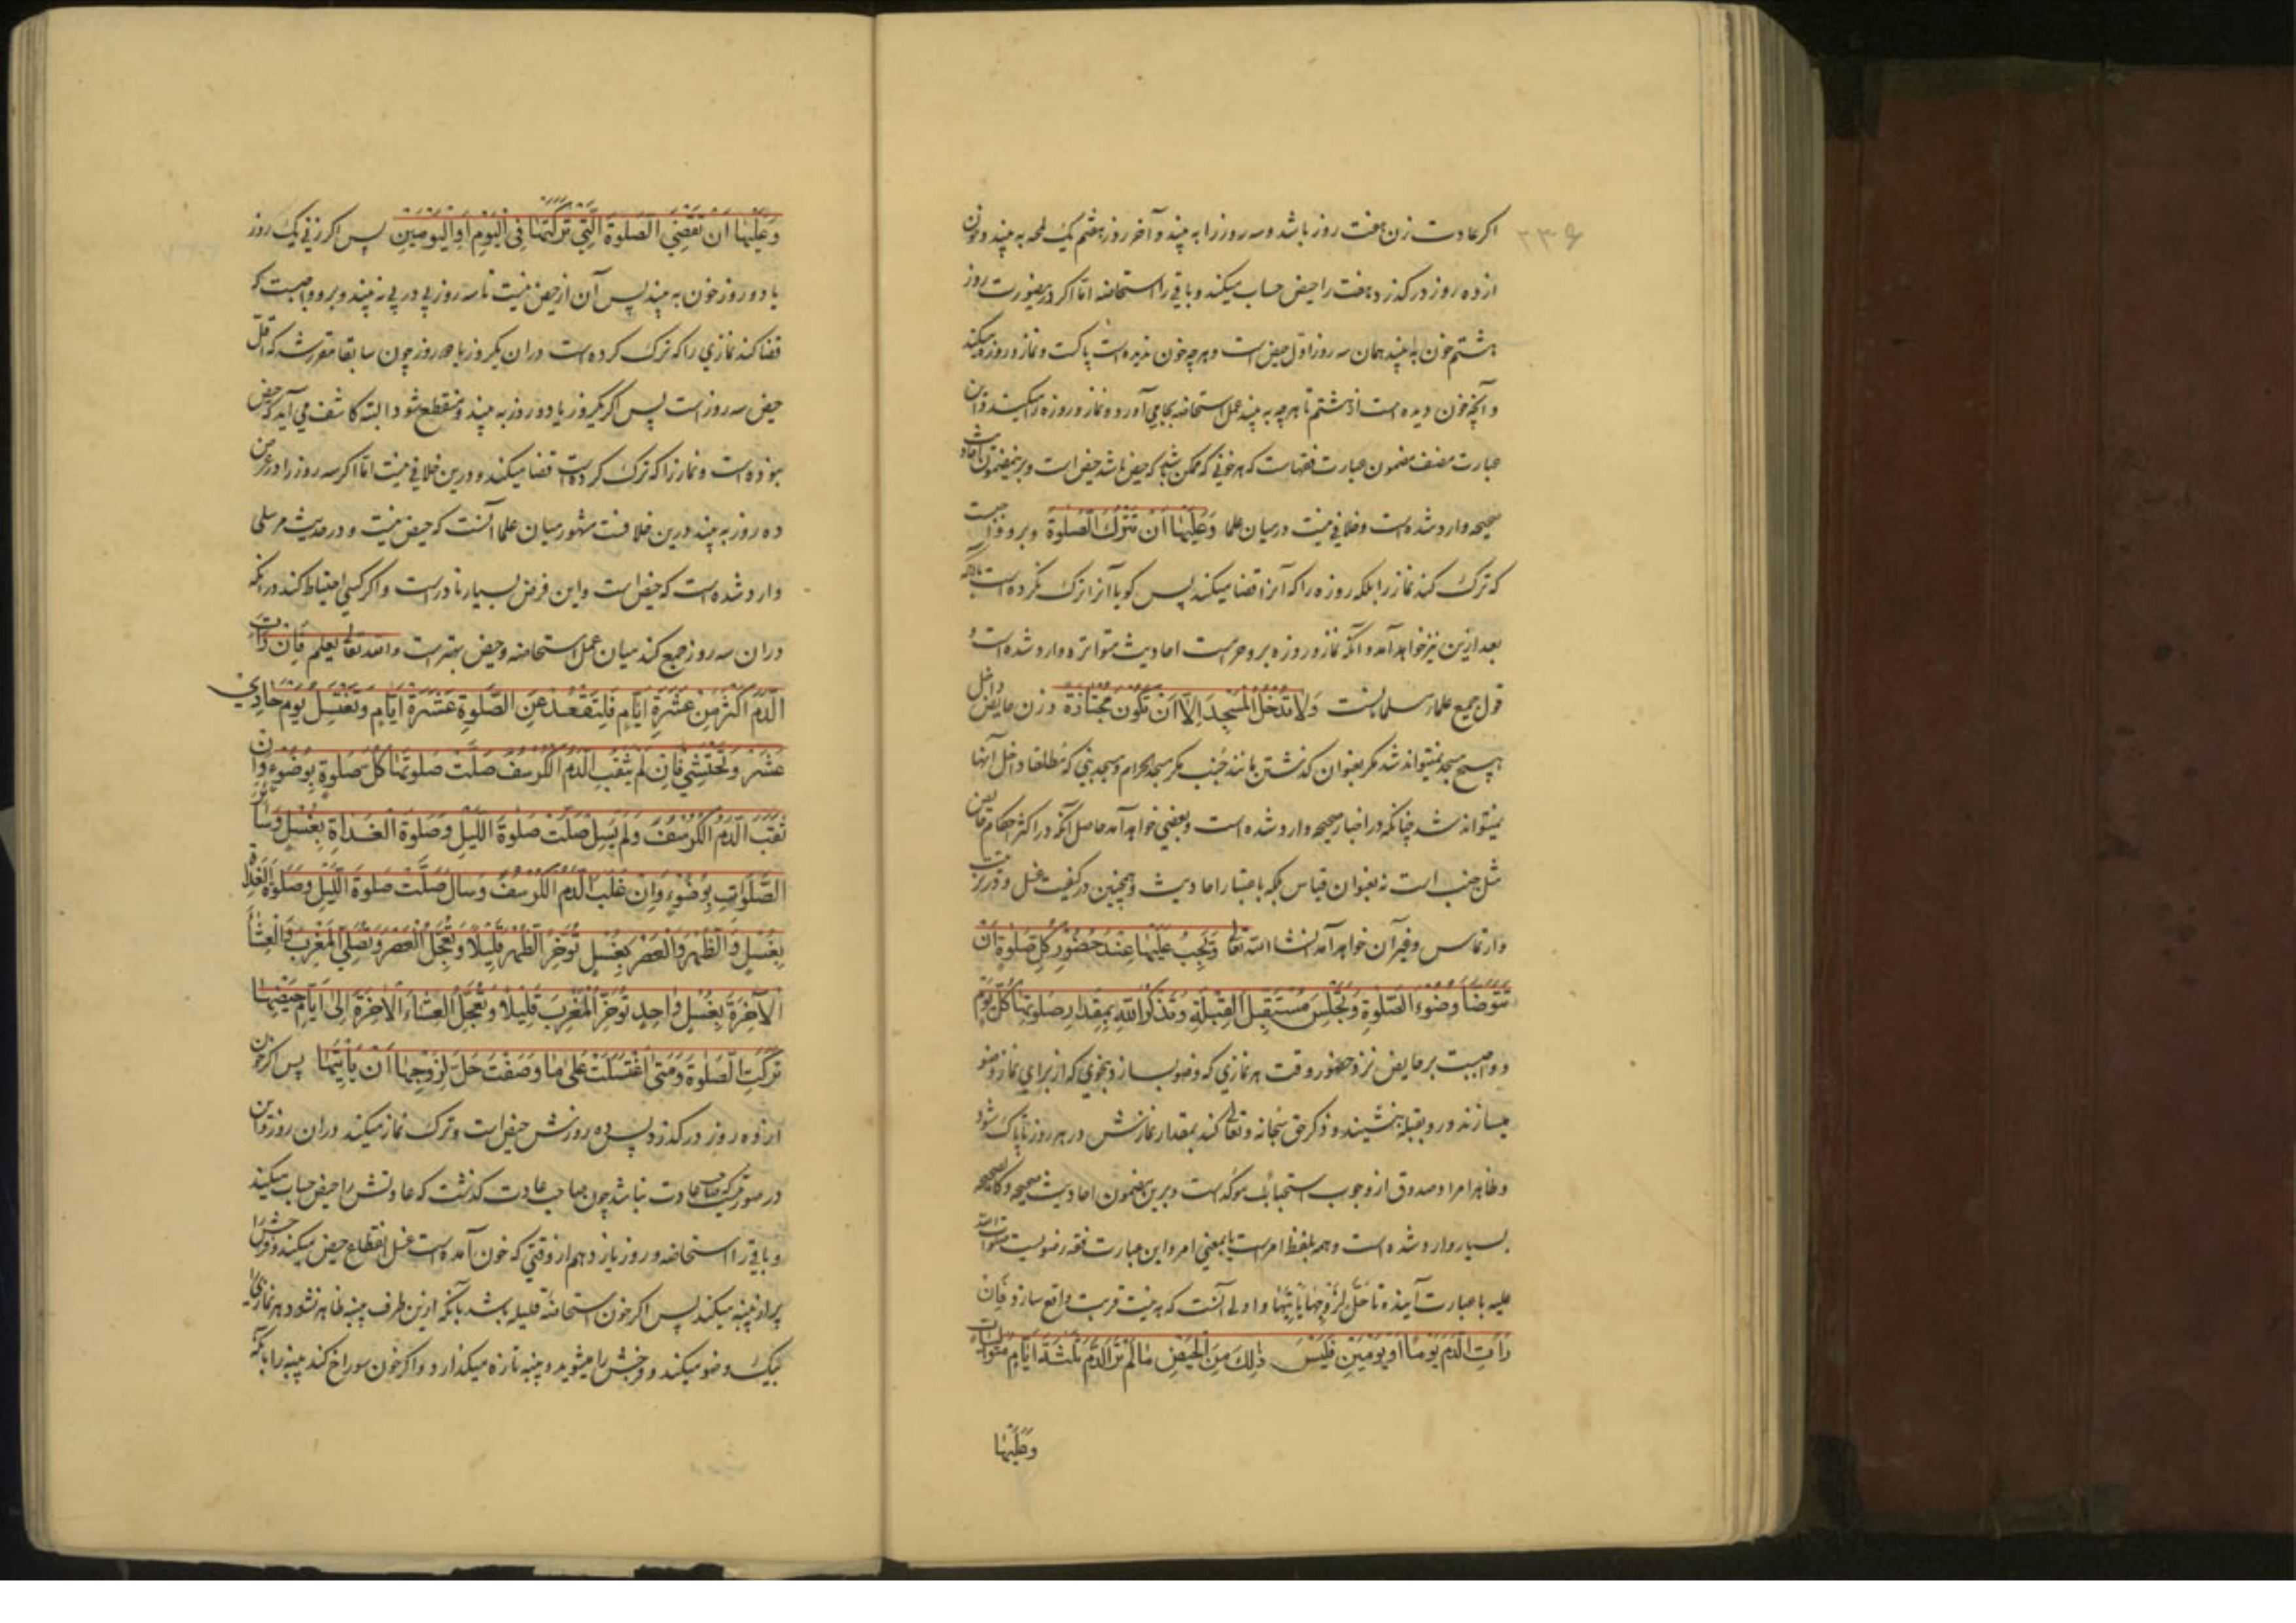 ۲۳۶
اکر عادت زن هفت روز باشد و سه روز را به بیند و آخر روز هشتم یک لمحه به بیند و خون
از ده روز درکذرد هفت را حیض حساب میکند و باقی را استحاضه اما اکر درینصورت روز
هشتم خون به بیند همان سه روز اول حیض است و هر چه خون ندیده است پاکست و نماز و روزه میکند
و آنچه خون دیده است از هشتم تا هر چه به بیند عمل استحاضه بجا می آورد و نماز و روزه را میکند و این
عبارت مصنف مضمون عبارت فقهاست که هر خونی که ممکن باشد که حیض باشد حیض است و برینمضمون احادیث
صحیحه وارد شده است و خلافی نیست درمیان علما وَعَلَیْهَا اَنْ تَتْرُكَ الصَّلوةَ و برو واجبست
که ترک کند نماز را بلکه روزه را که آنرا قضا میکند پس کویا آنرا ترک نکرده است با آنکه
بعد ازین نیز خواهد آمد و آنکه نماز و روزه برو حرامست احادیث متواتره وارد شده است و
قول جمیع علماء مسلمانست وَلَا تَدْخُلُ الْمَسْجِدَ اِلَّا اَنْ تَكُونَ مُجْتَازَةً و زن حایض داخل
هیچ مسجد نمیتواند شد مکر بعنوان کذشتن مانند جنب مکر مسجد حرام و مسجد نبی که مطلقا داخل آنها
نمیتواند شد چنانکه در اخبار صحیحه وارد شده است و بعضی خواهد آمد حاصل آنکه در اکثر احکام حایض
مثل جنب است نه بعنوان قیاس بلکه باعتبار احادیث و همچنین در کیفیت غسل و ترتیب
و ارتماس و غیر آن خواهد آمد انشاء الله تعالی وَتَجِبُ عَلَیْهَا عِنْدَ حُضُورِ كُلِّ صَلوةٍ اَنْ
تَتَوَضَّأَ وُضُوءَ الصَّلوةِ وَتَجْلِسَ مُسْتَقْبِلَ الْقِبْلَةِ وَتَذْكُرَ اللهَ بِمِقْدَارِ صَلوتِهَا كُلَّ یَوْمٍ
و واجبست بر حایض نزد حضور وقت هر نمازی که وضو بسازد بنحوی که از برای نماز وضو
میسازند و رو بقبله بنشیند و ذکر حق سبحانه و تعالی کند بمقدار نمازش در هر روز تا پاک شود
و ظاهرا مراد صدوق از وجوب استحباب مؤکد است و برین مضمون احادیث صحیحه و کالصحیحه
بسیار وارد شده است و همه بلفظ امر است یا بمعنی امر و این عبارت فقه رضویست صلوات الله
علیه با عبارت آینده تا حَلَّ لِزَوْجِهَا اَنْ یَأتِیَهَا و اولی آنست که به نیت قربت واقع سازد فَاِنْ
رَأتِ الدَّمَ یَوْمًا اَوْ یَوْمَیْنِ فَلَیْسَ ذٰلِكَ مِنَ الْحَیْضِ مَا لَمْ تَرَ الدَّمَ ثَلٰثَةَ اَیَّامٍ مُتَوَالِیَاتٍ
وَعَلَیْهَا
وَعَلَیْهَا اَنْ تَقْضِیَ الصَّلوةَ الَّتِی تَرَكَتْهَا فِی الْیَوْمِ اَوِ الْیَوْمَیْنِ پس اکر زنی یک روز
یا دو روز خون به بیند پس آن از حیض نیست تا سه روز پی در پی نه بیند و برو واجبست که
قضا کند نمازی را که ترک کرده است دران یکروز یا دو روز چون سابقا مقرر شد که اقل
حیض سه روز است پس اکر یکروز یا دو روز به بیند و منقطع شود البته کاشف می آید که حیض
نبوده است و نماز را که ترک کرده است قضا میکند و درین خلافی نیست اما اکر سه روز را در عرض
ده روز به بیند درین خلافست مشهور میان علما آنست که حیض نیست و در حدیث مرسلی
وارد شده است که حیض است و این فرض بسیار نادر است و اکر کسی احتیاط کند در آنکه
دران سه روز جمع کند میان عمل استحاضه و حیض بهتر است والله تعالی یعلم فَاِنْ رَأتِ
الدَّمَ اَكْثَرَ مِنْ عَشَرَةِ اَیَّامٍ فَلْتَقْعُدْ عَنِ الصَّلوةِ عَشَرَةَ اَیَّامٍ وَتَغْتَسِلُ یَوْمَ حَادِی
عَشَرَ وَتَحْتَشِی فَاِنْ لَمْ یَثْقُبِ الدَّمُ الْكُرْسُفَ صَلَّتْ صَلوتَهَا كُلَّ صَلوةٍ بِوُضُوءٍ وَاِنْ
ثَقَبَ الدَّمُ الْكُرْسُفَ وَلَمْ یَسِلْ صَلَّتْ صَلوةَ اللَّیْلِ وَصَلوةَ الْغَدَاةِ بِغُسْلٍ وَسَائِرَ
الصَّلَوَاتِ بِوُضُوءٍ وَاِنْ غَلَبَ الدَّمُ الْكُرْسُفَ وَسَالَ صَلَّتْ صَلوةَ اللَّیْلِ وَصَلوةَ الْغَدَاةِ
بِغُسْلٍ وَالظُّهْرَ وَالْعَصْرَ بِغُسْلٍ تُؤَخِّرُ الظُّهْرَ قَلِیلًا وَتُعَجِّلُ الْعَصْرَ وَتُصَلِّی الْمَغْرِبَ وَالْعِشَاءَ
الْآخِرَةَ بِغُسْلٍ وَاحِدٍ تُؤَخِّرُ الْمَغْرِبَ قَلِیلًا وَتُعَجِّلُ الْعِشَاءَ الْآخِرَةَ اِلٰی اَیَّامِ حَیْضِهَا
تَرَكَتِ الصَّلوةَ وَمَتٰی اغْتَسَلَتْ عَلٰی مَا وَصَفْتُ حَلَّ لِزَوْجِهَا اَنْ یَأْتِیَهَا پس اکر خون
از ده روز درکذرد پس ده روزش حیض است و ترک نماز میکند دران روز و این
در صورتیست که صاحب عادت نباشد چون صاحب عادت کذشت که عادتش را حیض حساب میکند
و باقی را استحاضه و روز یازدهم از وقتی که خون آمده است غسل انقطاع حیض میکند و فرجش را
پر از پنبه میکند پس اکر خون استحاضه قلیله باشد بآنکه ازین طرف پنبه ظاهر نشود هر نمازی را
بیک وضو میکند و فرجش را میشوید و پنبه تازه میکذارد و اکر خون سوراخ کند پنبه را بآنکه